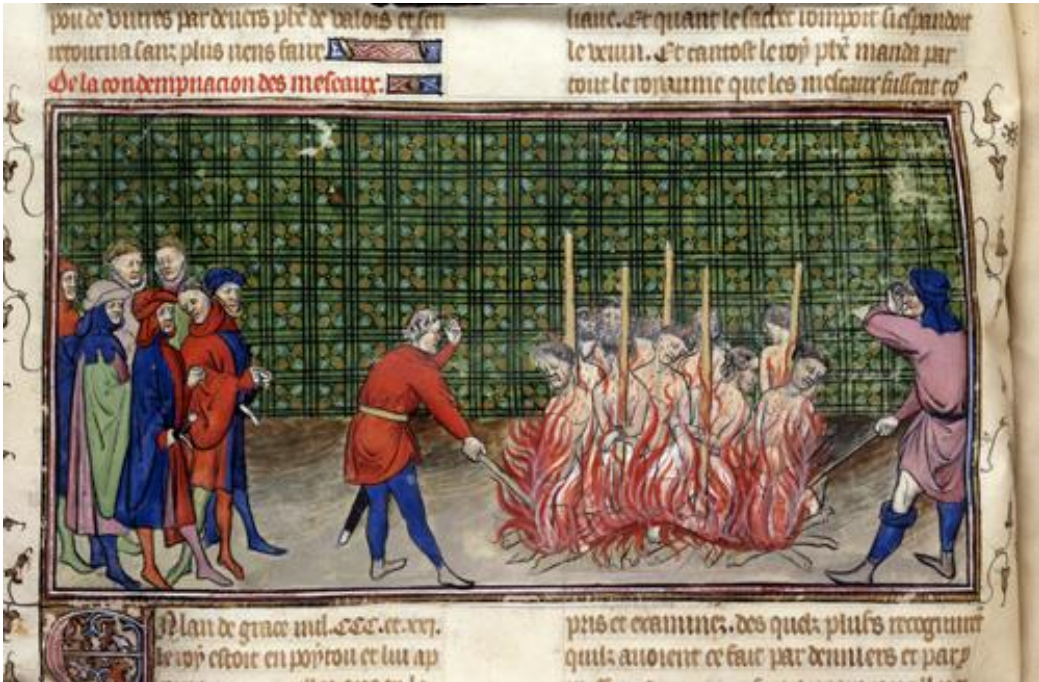 pou de viures par deuers phe de valois et sen
retourna sanz plus riens faire
De la condempnacion des meseaux.
En lan de grace mil. CCC. et. xxj.
le roy estoit en poytou et lui ap
liaue. Et quant le sachet rompoit si espandoit
le venin. Et tantost le roy phe manda par
tout le royaume que les meseaux fussent co
pris et examinez. des quelz plus recognurent
quilz auoient ce fait par denniers et par p